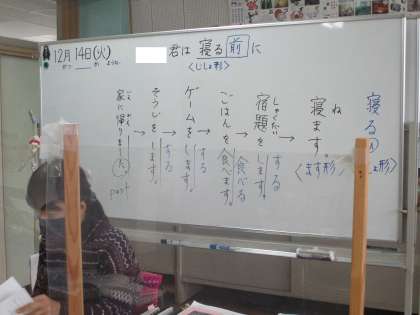 12月14日(火)
がつ
君は 寝る前に
〈じしょ形〉
寝る
ね
寝ます。
〈ます形
しゅくだい
宿題をします。
する
ごはんを食べます。
食べる
ゲームをします。
する
そうじをします。
する
家に帰りました。
past